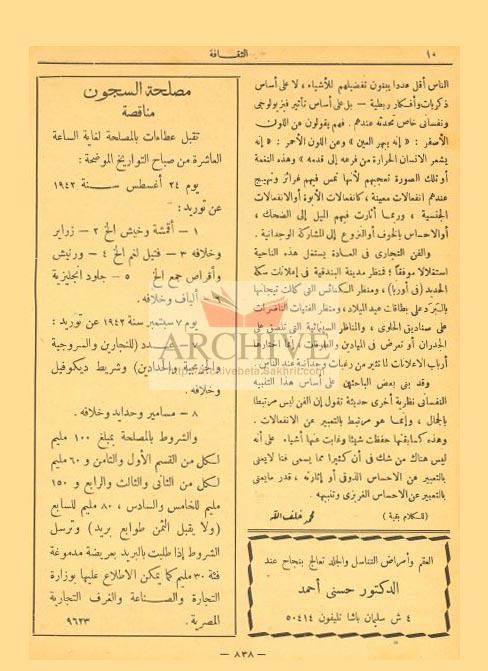 ١٠
الثقافة
الناس أقل عددا يبنون تفضيلهم للأشياء ، لا على أساس
ذكريات وأفكار ربطية – بل على أساس تأثير فزيولوجى
ونفسانى خاص تحدثه عندهم . فهم يقولون عن اللون
الأصفر : « إنه يبهر العين » وعن اللون الأحمر : « إنه
يشعر الانسان الحرارة من فرعه إلى قدمه » وهذه النغمة
أو تلك الصورة تعجبهم لأنها تمس فيهم غرائز وتهيج
عندهم انفعالات معينة ، كانفعالات الأبوة أو الانفعالات
الجنسية ، وربما أثارت فيهم الميل إلى الضحك ،
أو الاحساس بالخوف أو النزوع إلى المشاركة الوجدانية .
والفن التجارى فى العادة يستغل هذه الناحية
استغلالا موفقا ؛ فمنظر مدينة البندقية فى إعلانات سكة
الحديد (بأوربا) ، ومنظر الكنائس التى كالت تيجانها
بالبَرَد على بطاقات عيد الميلاد ، ومنظر الفتيات الناضرات
على صناديق الحلوى ، والمناظر السينمائية التى تلصق على
الجدران أو تعرض فى الميادين والطرقات ، إنما اختارها
أرباب الاعلانات لما تثير من رغبات وجدانية عند الناس .
وقد بنى بعض الباحثين على أساس هذا التنبيه
النفسانى نظرية أخرى حديثة تقول إن الفن ليس مرتبطا
بالجمال ، وإنما هو مرتبط بالتعبير عن الانفعالات .
وهذه كسابقتها حفظت شيئا وغابت عنها أشياء على أنه
ليس هناك من شك فى أن كثيرا مما يسمى فنا لا يعنى
بالتعبير عن الاحساس الذوقى أو إثارته ، قدر ما يعنى
بالتعبير عن الاحساس الغريزى وتنبيهه .
(للكلام بقية)
محمد خلف الله
العقم وأمراض التناسل والجلد تعالج بنجاح عند
الدكتور حسنى أحمد
٤ ش سليمان باشا تليفون ٥٠٤١٤
مصلحة السجون
مناقصة
تقبل عطاءات بالمصلحة لغاية الساعة
العاشرة من صباح التواريخ الموضحة :
يوم ٢٤ أغسطس سنة ١٩٤٢
عن توريد :
١ – أقمشة وخيش الخ ٢ – زراير
وخلافه ٣ – فتيل لغم الخ ٤ – ورنيش
وأقراص جمع الخ ٥ – جلود انجليزية
٦ – ألياف وخلافه .
يوم ٧ سبتمبر سنة ١٩٤٢ عن توريد :
٧ – عدد (للنجارين والسروجية
والجزمجية والحدادين) وشريط ديكوفيل
وخلافه .
٨ – مسامير وحدايد وخلافه .
والشروط بالمصلحة بمبلغ ١٠٠ مليم
لكل من القسم الأول والثامن و ٦٠ مليم
لكل من الثانى والثالث والرابع و ١٥٠
مليم للخامس والسادس ، ٨٠ مليم للسابع
(ولا يقبل الثمن طوابع بريد) وترسل
الشروط إذا طلبت بالبريد بعريضة مدموغة
فئة ٣٠ مليم كما يمكن الاطلاع عليها بوزارة
التجارة والصناعة والغرف التجارية
المصرية .
٩٦٢٣
– ٨٣٨ –
ARCHIVE
http://Archivebeta.Sakhrit.com